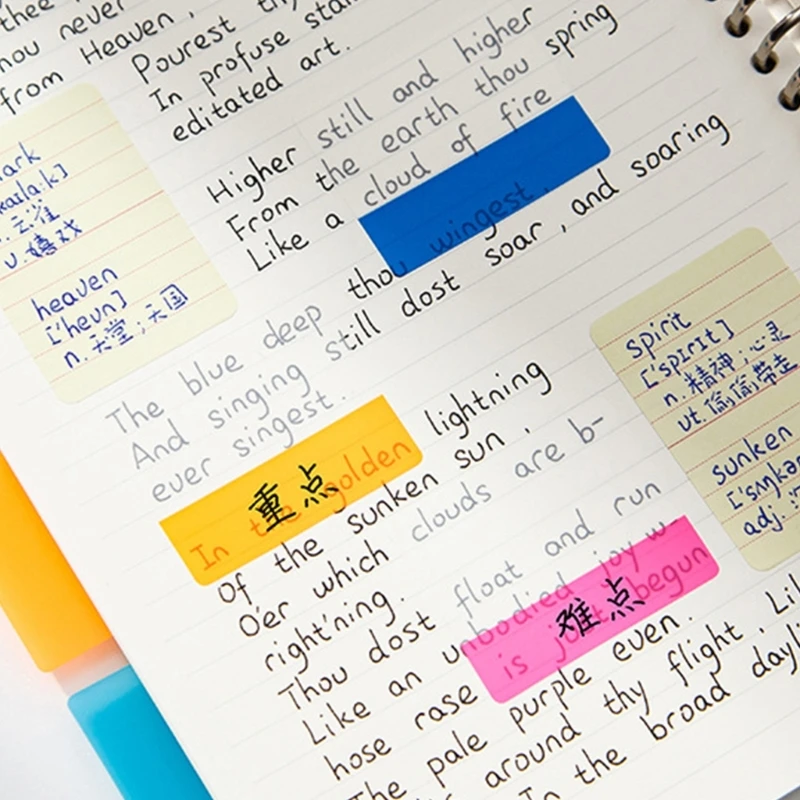 thee
Pourest
hou never
In profuse
from Heaven,
editated art.
Higher still and higher
From the earth thou spring
Like a cloud of fire
thou wingest,
The blue deep
And singing still dost soar, and soaring
ever singest.
In the golden lightning
重点
Of the sunken sun,
O'er which clouds are b-
right'ning.
Thou dost float and run
Like an unbodied joy w
hose rase is just begun
难点
The pale purple even.
around thy flight. Lik
In the broad dayli
ark
云雀
v. 嬉戏
heaven
['hevn]
n. 天堂;天国
spirit
['spɪrɪt]
n. 精神;心灵
vt. 偷偷带走
sunken
['sʌŋkən
adj.